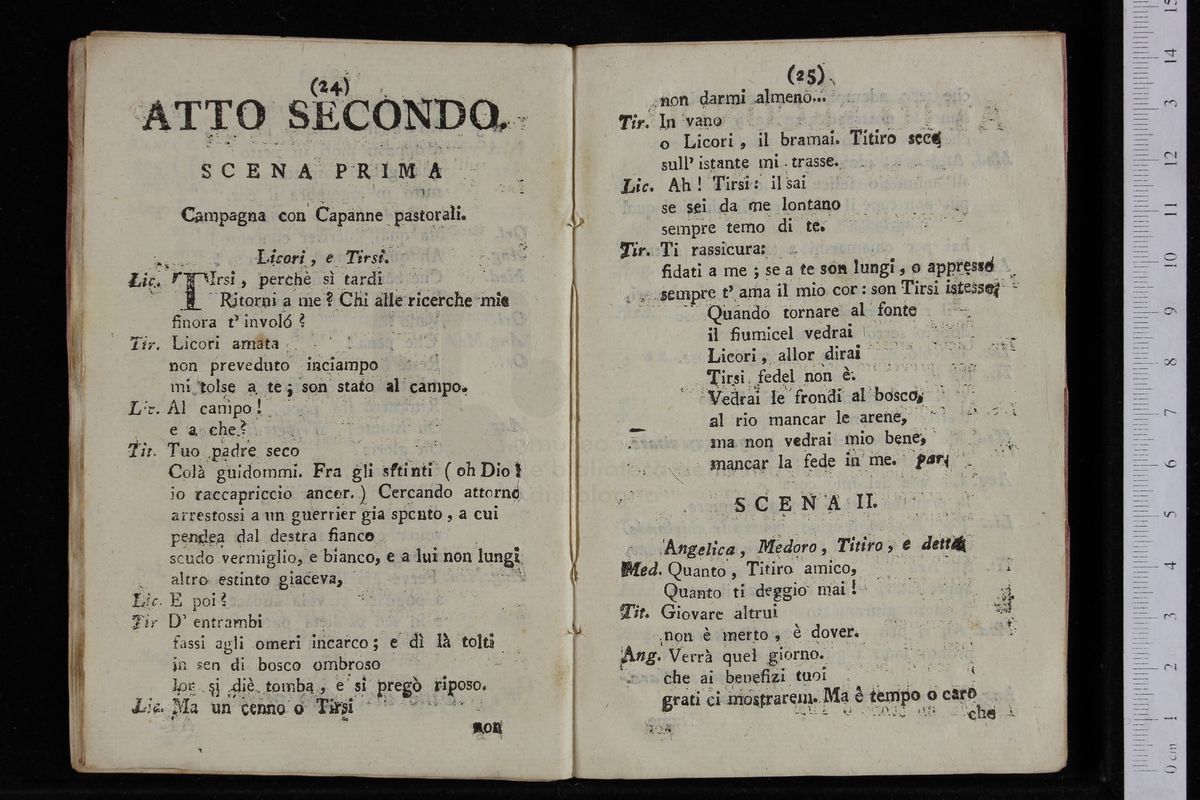 (24)
ATTO SECONDO.
SCENA PRIMA
Campagna con Capanne pastorali.
Licori, e Tirsi.
Lic. TIrsi, perchè sì tardi
Ritorni a me? Chi alle ricerche mie
finora t' involó?
Tir. Licori amata
non preveduto inciampo
mi tolse a te; son stato al campo.
Lic. Al campo!
e a che?
Tir. Tuo padre seco
Colà guidommi. Fra gli estinti (oh Dio!
io raccapriccio ancor.) Cercando attorno
arrestossi a un guerrier gia spento, a cui
pendea dal destra fianco
scudo vermiglio, e bianco, e a lui non lungi
altro estinto giaceva,
Lic. E poi?
Tir D' entrambi
fassi agli omeri incarco; e dì là tolti
in sen di bosco ombroso
lor si diè tomba, e si pregò riposo.
Lic. Ma un cenno o Tirsi
non
(25)
non darmi almeno...
Tir. In vano
o Licori, il bramai. Titiro seco
sull' istante mi trasse.
Lic. Ah! Tirsi: il sai
se sei da me lontano
sempre temo di te.
Tir. Ti rassicura:
fidati a me; se a te son lungi, o appresso
sempre t' ama il mio cor: son Tirsi istesso,
Quando tornare al fonte
il fiumicel vedrai
Licori, allor dirai
Tirsi fedel non è.
Vedrai le frondi al bosco,
al rio mancar le arene,
ma non vedrai mio bene,
mancar la fede in me. par.
SCENA II.
Angelica, Medoro, Titiro, e detta
Med. Quanto, Titiro amico,
Quanto ti deggio mai!
Tit. Giovare altrui
non è merto, è dover.
Ang. Verrà quel giorno.
che ai benefizi tuoi
grati ci mostrarem. Ma è tempo o caro
che
museo
biblioteca
di bologna
0 cm 1 2 3 4 5 6 7 8 9 10 11 12 3 14 15